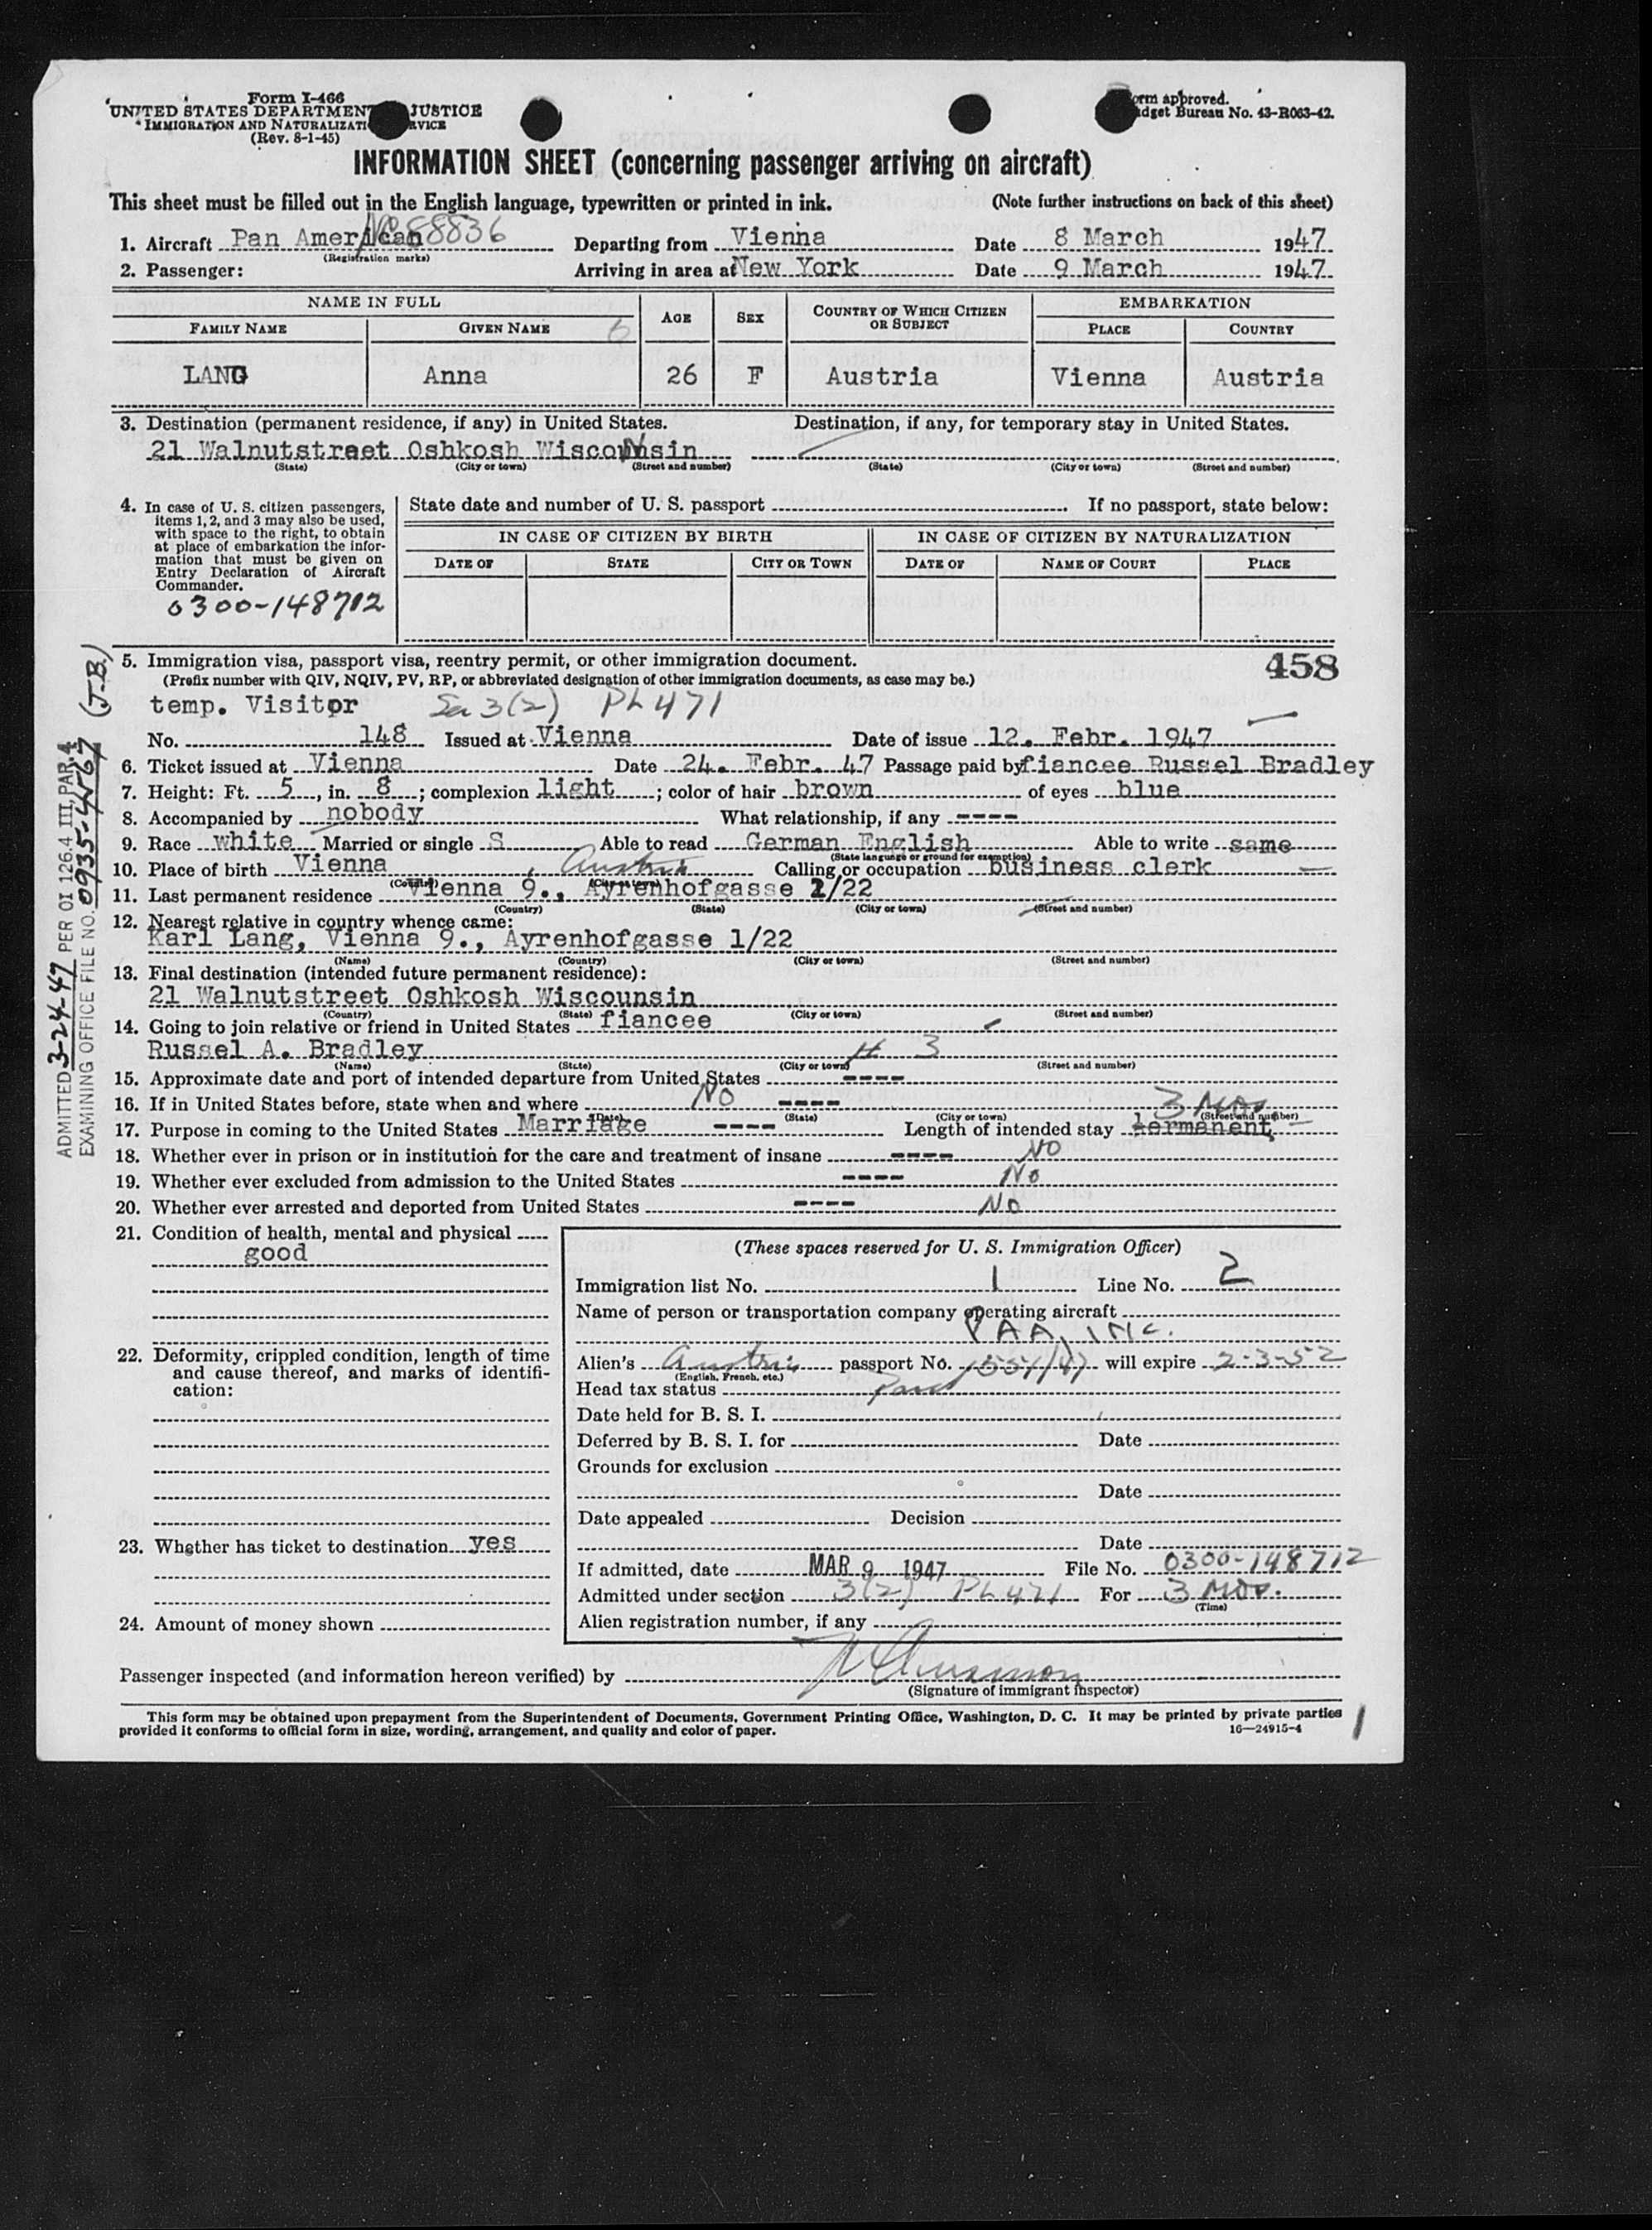 Form I-466
UNITED STATES DEPARTMENT JUSTICE
IMMIGRATION AND NATURALIZATI RVICE
(Rev. 8-1-45)
orm approved.
dget Bureau No. 43-R063-42.
INFORMATION SHEET (concerning passenger arriving on aircraft)
This sheet must be filled out in the English language, typewritten or printed in ink. (Note further instructions on back of this sheet)
1. Aircraft Pan American NC 88836 Departing from Vienna Date 8 March 1947
(Registration marks)
2. Passenger: Arriving in area at New York Date 9 March 1947
NAME IN FULL AGE SEX COUNTRY OF WHICH CITIZEN OR SUBJECT EMBARKATION
FAMILY NAME GIVEN NAME PLACE COUNTRY
LANG Anna 26 F Austria Vienna Austria
3. Destination (permanent residence, if any) in United States. Destination, if any, for temporary stay in United States.
21 Walnutstreet Oshkosh Wiscounsin
(State) (City or town) (Street and number) (State) (City or town) (Street and number)
4. In case of U. S. citizen passengers, items 1, 2, and 3 may also be used, with space to the right, to obtain at place of embarkation the information that must be given on Entry Declaration of Aircraft Commander.
0300-148712
State date and number of U. S. passport If no passport, state below:
IN CASE OF CITIZEN BY BIRTH IN CASE OF CITIZEN BY NATURALIZATION
DATE OF STATE CITY OR TOWN DATE OF NAME OF COURT PLACE
5. Immigration visa, passport visa, reentry permit, or other immigration document. 458
(Prefix number with QIV, NQIV, PV, RP, or abbreviated designation of other immigration documents, as case may be.)
temp. Visitor Sec 3(2) PL 471
No. 148 Issued at Vienna Date of issue 12. Febr. 1947
6. Ticket issued at Vienna Date 24. Febr. 47 Passage paid by fiancee Russel Bradley
7. Height: Ft. 5, in. 8; complexion light; color of hair brown of eyes blue
8. Accompanied by nobody What relationship, if any ----
9. Race white Married or single S Able to read German English Able to write same
(State language or ground for exemption)
10. Place of birth Vienna, Austria Calling or occupation business clerk
(Country) (City or town)
11. Last permanent residence Vienna 9., Ayrenhofgasse 1/22
(Country) (State) (City or town) (Street and number)
12. Nearest relative in country whence came:
Karl Lang, Vienna 9., Ayrenhofgasse 1/22
(Name) (Country) (City or town) (Street and number)
13. Final destination (intended future permanent residence):
21 Walnutstreet Oshkosh Wiscounsin
(Country) (State) (City or town) (Street and number)
14. Going to join relative or friend in United States fiancee
Russel A. Bradley # 3
(Name) (State) (City or town) (Street and number)
15. Approximate date and port of intended departure from United States ----
16. If in United States before, state when and where NO ----
(Date) (State) (City or town) (Street and number)
17. Purpose in coming to the United States Marriage ---- Length of intended stay permanent 3 Mos
18. Whether ever in prison or in institution for the care and treatment of insane ---- NO
19. Whether ever excluded from admission to the United States ---- No
20. Whether ever arrested and deported from United States ---- NO
21. Condition of health, mental and physical
good
22. Deformity, crippled condition, length of time and cause thereof, and marks of identification:
23. Whether has ticket to destination yes
24. Amount of money shown
(These spaces reserved for U. S. Immigration Officer)
Immigration list No. 1 Line No. 2
Name of person or transportation company operating aircraft
PAA, INC.
Alien's Austria passport No. 1557/47 will expire 2-3-52
(English, French, etc.)
Head tax status Paid
Date held for B. S. I.
Deferred by B. S. I. for Date
Grounds for exclusion
Date
Date appealed Decision
Date
If admitted, date MAR 9 1947 File No. 0300-148712
Admitted under section 3(2) PL 471 For 3 Mos.
(Time)
Alien registration number, if any
Passenger inspected (and information hereon verified) by
(Signature of immigrant inspector)
This form may be obtained upon prepayment from the Superintendent of Documents, Government Printing Office, Washington, D. C. It may be printed by private parties
provided it conforms to official form in size, wording, arrangement, and quality and color of paper. 16—24915-4
1
ADMITTED 3-24-47 PER OI 126.4 III, PAR. 4
EXAMINING OFFICE FILE NO. 0935-4567 (J-B.)